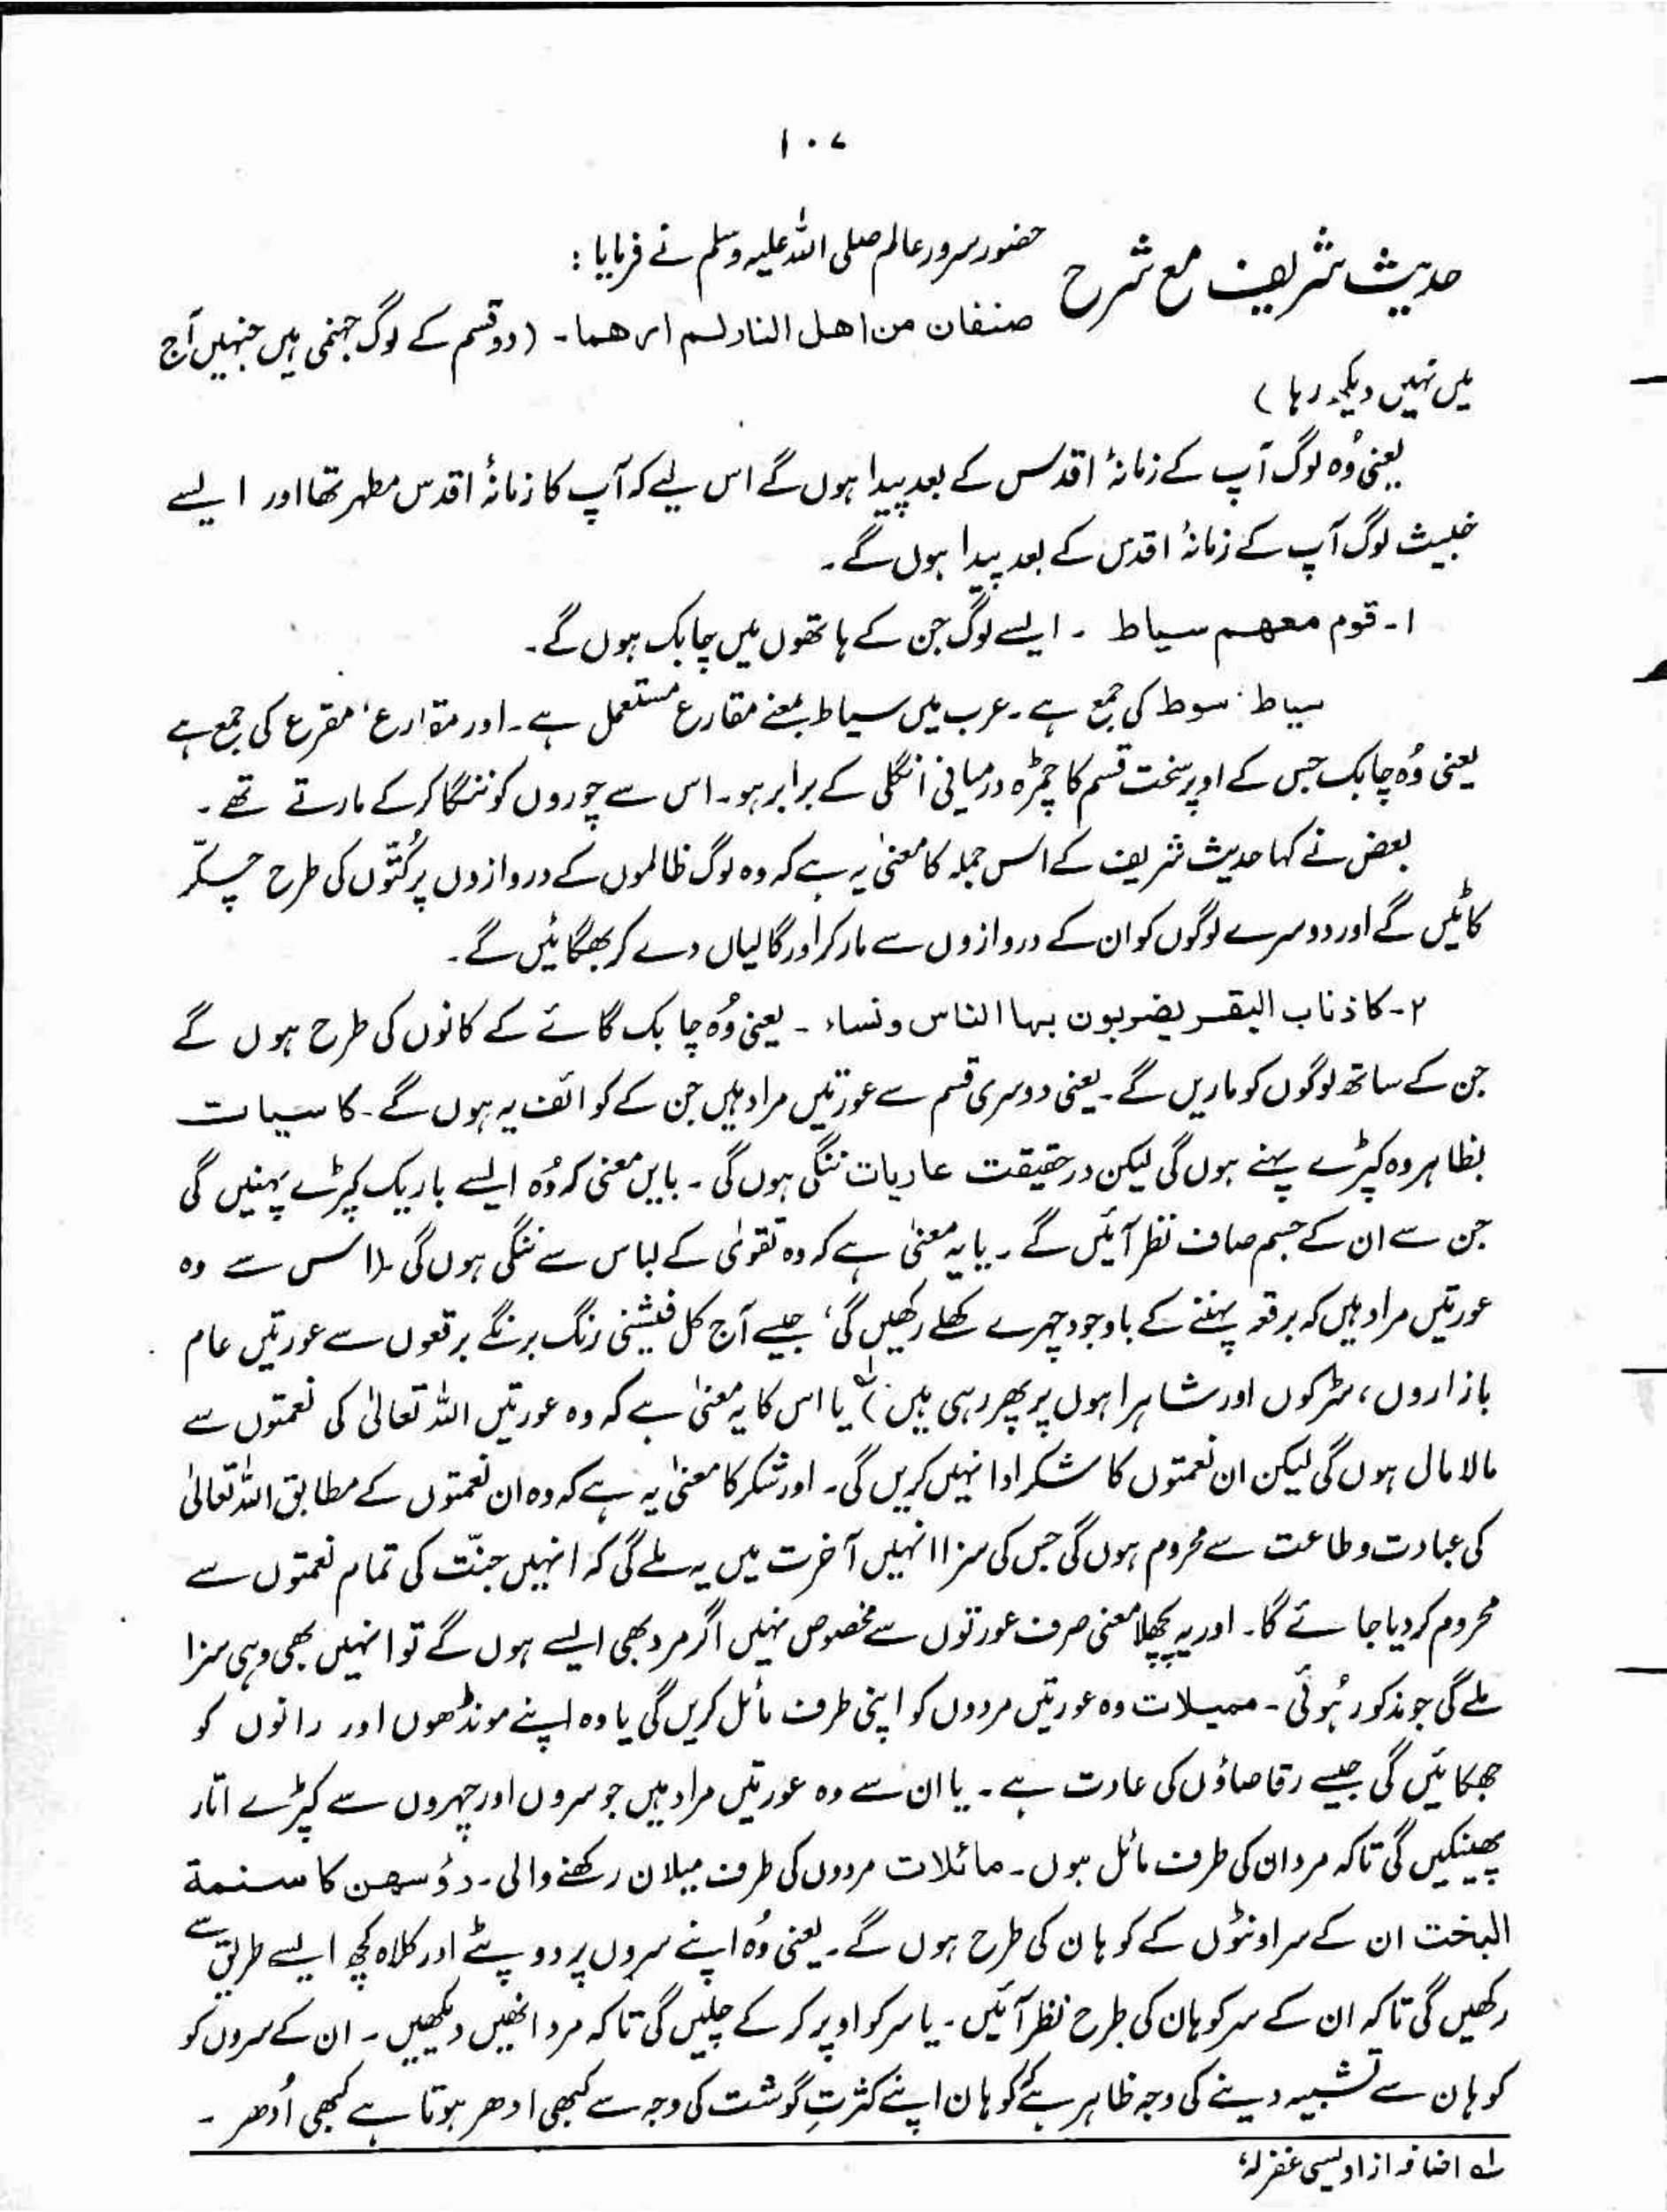 ۱۰۷
حدیث شریف مع شرح حضور سرور عالم صلی اللہ علیہ وسلم نے فرمایا :
صنفان من اهل النار لم ارهما ۔ (دو قسم کے لوگ جہنمی ہیں جنہیں آج
میں نہیں دیکھ رہا )
یعنی وُہ لوگ آپ کے زمانۂ اقدس کے بعد پیدا ہوں گے اس لیے کہ آپ کا زمانۂ اقدس مطہر تھا اور ایسے
خبیث لوگ آپ کے زمانۂ اقدس کے بعد پیدا ہوں گے ۔
۱۔ قوم معهم سياط ۔ ایسے لوگ جن کے ہاتھوں میں چابک ہوں گے ۔
سیاط، سوط کی جمع ہے ۔ عرب میں سیاط بمعنے مقارع مستعمل ہے ۔ اور مقارع، مقرع کی جمع ہے
یعنی وُہ چابک جس کے اوپر سخت قسم کا چمڑہ درمیانی انگلی کے برابر ہو ۔ اس سے چوروں کو ننگا کر کے مارتے تھے ۔
بعض نے کہا حدیث شریف کے اس جملہ کا معنیٰ یہ ہے کہ وہ لوگ ظالموں کے دروازوں پر کُتّوں کی طرح چکّر
کاٹیں گے اور دوسرے لوگوں کو ان کے دروازوں سے مار کر اور گالیاں دے کر بھگائیں گے ۔
۲۔ کاذناب البقر يضربون بها الناس ونساء ۔ یعنی وُہ چابک گائے کے کانوں کی طرح ہوں گے
جن کے ساتھ لوگوں کو ماریں گے ۔ یعنی دوسری قسم سے عورتیں مراد ہیں جن کے کوائف یہ ہوں گے ۔ کاسیات
بظاہر وہ کپڑے پہنے ہوں گی لیکن درحقیقت عاریات ننگی ہوں گی ۔ بایں معنی کہ وُہ ایسے باریک کپڑے پہنیں گی
جن سے ان کے جسم صاف نظر آئیں گے ۔ یا یہ معنیٰ ہے کہ وہ تقویٰ کے لباس سے ننگی ہوں گی ۔ (اس سے وہ
عورتیں مراد ہیں کہ برقعہ پہننے کے باوجود چہرے کھلے رکھیں گی، جیسے آج کل فیشنی رنگ برنگے برقعوں سے عورتیں عام
بازاروں، سڑکوں اور شاہراہوں پر پھر رہی ہیں) لہ یا اس کا یہ معنیٰ ہے کہ وہ عورتیں اللہ تعالیٰ کی نعمتوں سے
مالامال ہوں گی لیکن ان نعمتوں کا شکر ادا نہیں کریں گی ۔ اور شکر کا معنیٰ یہ ہے کہ وہ ان نعمتوں کے مطابق اللہ تعالیٰ
کی عبادت و طاعت سے محروم ہوں گی جس کی سزا انہیں آخرت میں یہ ملے گی کہ انہیں جنّت کی تمام نعمتوں سے
محروم کر دیا جائے گا ۔ اور یہ پچھلا معنی صرف عورتوں سے مخصوص نہیں اگر مرد بھی ایسے ہوں گے تو انہیں بھی وہی سزا
ملے گی جو مذکور ہُوئی ۔ ممیلات وہ عورتیں مردوں کو اپنی طرف مائل کریں گی یا وہ اپنے مونڈھوں اور رانوں کو
جھکائیں گی جیسے رقاصاؤں کی عادت ہے ۔ یا ان سے وہ عورتیں مراد ہیں جو سروں اور چہروں سے کپڑے اتار
پھینکیں گی تاکہ مرد ان کی طرف مائل ہوں ۔ مائلات مردوں کی طرف میلان رکھنے والی ۔ رؤسهن کاسنمة
البخت ان کے سر اونٹوں کے کوہان کی طرح ہوں گے ۔ یعنی وُہ اپنے سروں پر دوپٹے اور کلاہ کچھ ایسے طریق سے
رکھیں گی تاکہ ان کے سر کوہان کی طرح نظر آئیں ۔ یا سر کو اوپر کر کے چلیں گی تاکہ مرد انھیں دیکھیں ۔ ان کے سروں کو
کوہان سے تشبیہ دینے کی وجہ ظاہر ہے کہ کوہان اپنے کثرتِ گوشت کی وجہ سے کبھی ادھر ہوتا ہے کبھی اُدھر ۔
لہ اضافہ از اویسی غفرلہٗ